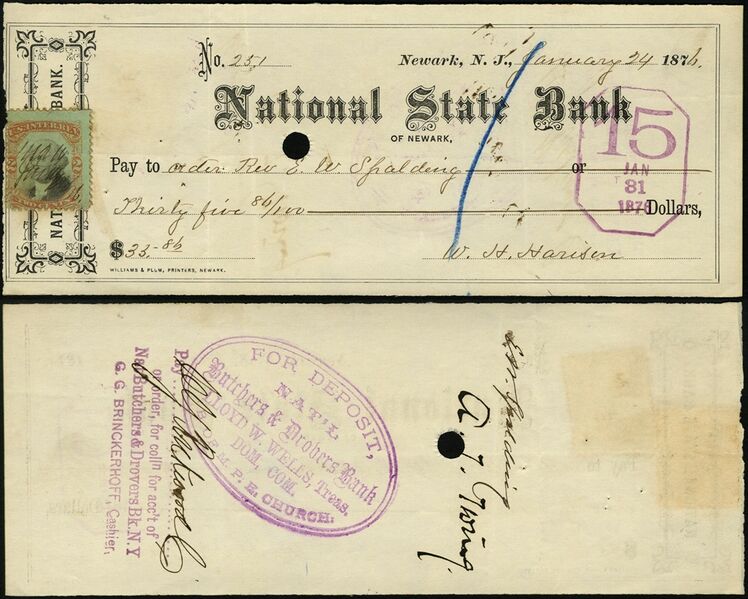 No. 251
Newark, N. J., January 24 1876.
National State Bank
OF NEWARK,
Pay to order Rev E. W Spalding or
Thirty five 86/100 Dollars,
$33.86
W. H. Harison
WILLIAMS & PLUM, PRINTERS, NEWARK.
BANK.
NAT
U.S. INTER. REV.
15
JAN
31
1876
FOR DEPOSIT,
NAT'L
Butchers & Drovers Bank
LLOYD W. WELLS, Treas.
DOM. COM.
P. E. CHURCH.
Pay
or order, for coll'n for acc't of
Nat Butchers & Drovers Bk. N.Y
G. G. BRINCKERHOFF, Cashier.
E W Spalding